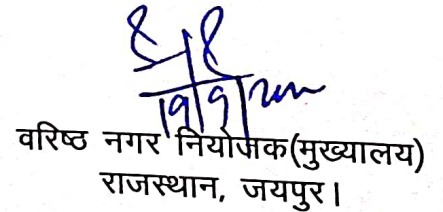 वरिष्ठ नगर नियोजक(मुख्यालय)
राजस्थान, जयपुर।